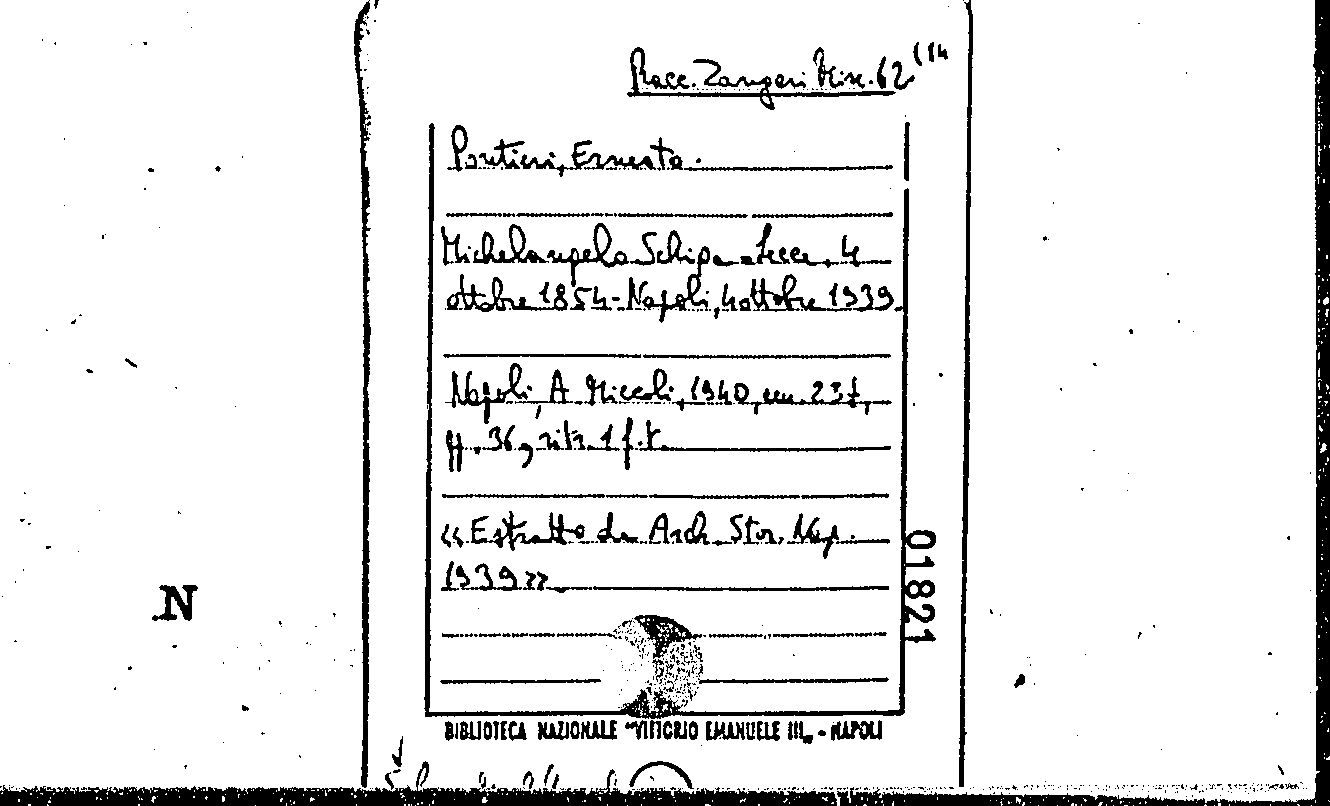 Racc. Zangari Misc. 62 (14
Pontieri, Ernesto.
Michelangelo Schipa - Lecce, 4
ottobre 1854 - Napoli, 4 ottobre 1939.
Napoli, A. Miccoli, 1940, cm. 23½,
pp. 36, ritr. 1 f. t.
«Estratto da Arch. Stor. Nap.
1939».
01821
N
BIBLIOTECA NAZIONALE "VITTORIO EMANUELE III„ - NAPOLI